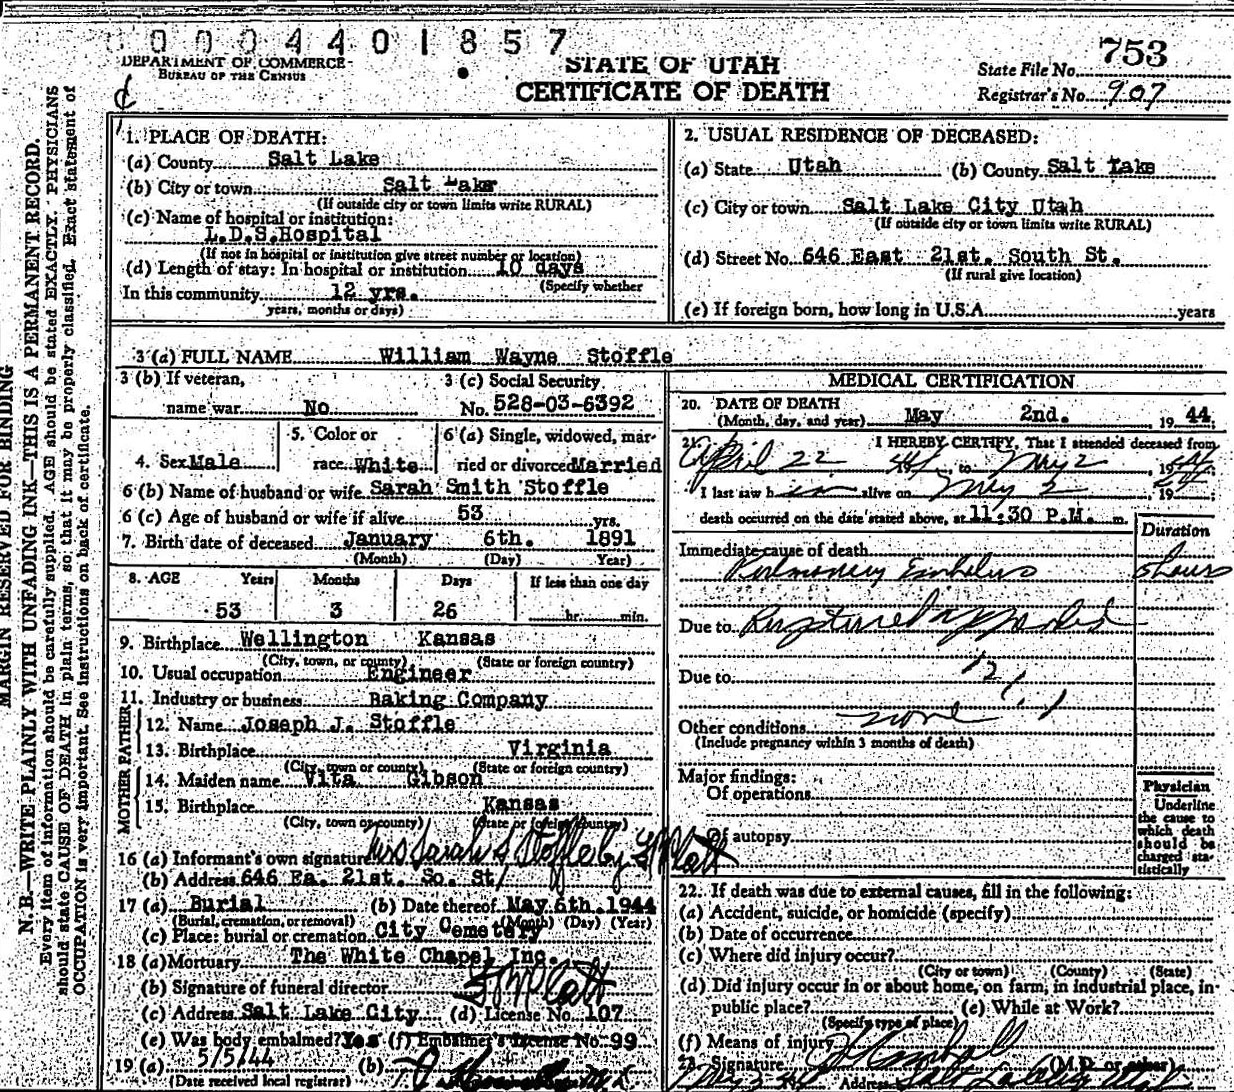 0004401857
DEPARTMENT OF COMMERCE
BUREAU OF THE CENSUS
STATE OF UTAH
CERTIFICATE OF DEATH
State File No. 753
Registrar's No. 907
MARGIN RESERVED FOR BINDING
N. B.—WRITE PLAINLY WITH UNFADING INK—THIS IS A PERMANENT RECORD.
Every item of information should be carefully supplied. AGE should be stated EXACTLY. PHYSICIANS
should state CAUSE OF DEATH in plain terms, so that it may be properly classified. Exact statement of
OCCUPATION is very important. See instructions on back of certificate.
1. PLACE OF DEATH:
(a) County Salt Lake
(b) City or town Salt Lake
(If outside city or town limits write RURAL)
(c) Name of hospital or institution:
L.D.S.Hospital
(If not in hospital or institution give street number or location)
(d) Length of stay: In hospital or institution 10 days
(Specify whether
In this community 12 yrs.
years, months or days)
2. USUAL RESIDENCE OF DECEASED:
(a) State Utah (b) County Salt Lake
(c) City or town Salt Lake City Utah
(If outside city or town limits write RURAL)
(d) Street No. 646 East 21st. South St.
(If rural give location)
(e) If foreign born, how long in U.S.A. years
3 (a) FULL NAME William Wayne Stoffle
3 (b) If veteran,
name war No
3 (c) Social Security
No. 528-03-6392
4. Sex Male
5. Color or
race White
6 (a) Single, widowed, mar-
ried or divorced Married
6 (b) Name of husband or wife Sarah Smith Stoffle
6 (c) Age of husband or wife if alive 53 yrs.
7. Birth date of deceased January 6th. 1891
(Month) (Day) Year)
8. AGE Years Months Days If less than one day
53 3 26 hr. min.
9. Birthplace Wellington Kansas
(City, town, or county) (State or foreign country)
10. Usual occupation Engineer
11. Industry or business Baking Company
FATHER
12. Name Joseph J. Stoffle
13. Birthplace Virginia
(City, town or county) (State or foreign country)
MOTHER
14. Maiden name Vita Gibson
15. Birthplace Kansas
(City, town or county) (State or foreign country)
16 (a) Informant's own signature Mrs Sarah S Stoffle by Platt
(b) Address 646 Ea. 21st. So. St/
17 (a) Burial (b) Date thereof May 6th. 1944
(Burial, cremation, or removal) (Month) (Day) (Year)
(c) Place: burial or cremation City Cemetery
18 (a) Mortuary The White Chapel Inc.
(b) Signature of funeral director Platt
(c) Address Salt Lake City (d) License No. 107
(e) Was body embalmed? Yes (f) Embalmer's License No. 99
19 (a) 5/5/44 (b)
(Date received local registrar)
MEDICAL CERTIFICATION
20. DATE OF DEATH
(Month, day, and year) May 2nd. , 19 44
21. I HEREBY CERTIFY, That I attended deceased from
April 22 44, to May 2, 19 44
I last saw him alive on May 2 19 44;
death occurred on the date stated above, at 11:30 P.M. m.
Duration
Immediate cause of death
Pulmonary Embolus 5 hours
Due to Ruptured appendix
Due to
Other conditions none
(Include pregnancy within 3 months of death)
Major findings:
Of operations
Of autopsy
Physician
Underline
the cause to
which death
should be
charged sta-
tistically
22. If death was due to external causes, fill in the following:
(a) Accident, suicide, or homicide (specify)
(b) Date of occurrence
(c) Where did injury occur?
(City or town) (County) (State)
(d) Did injury occur in or about home, on farm, in industrial place, in
public place? (e) While at Work?
(Specify type of place)
(f) Means of injury
23. Signature (M.D. or other)
Address Salt Lake City